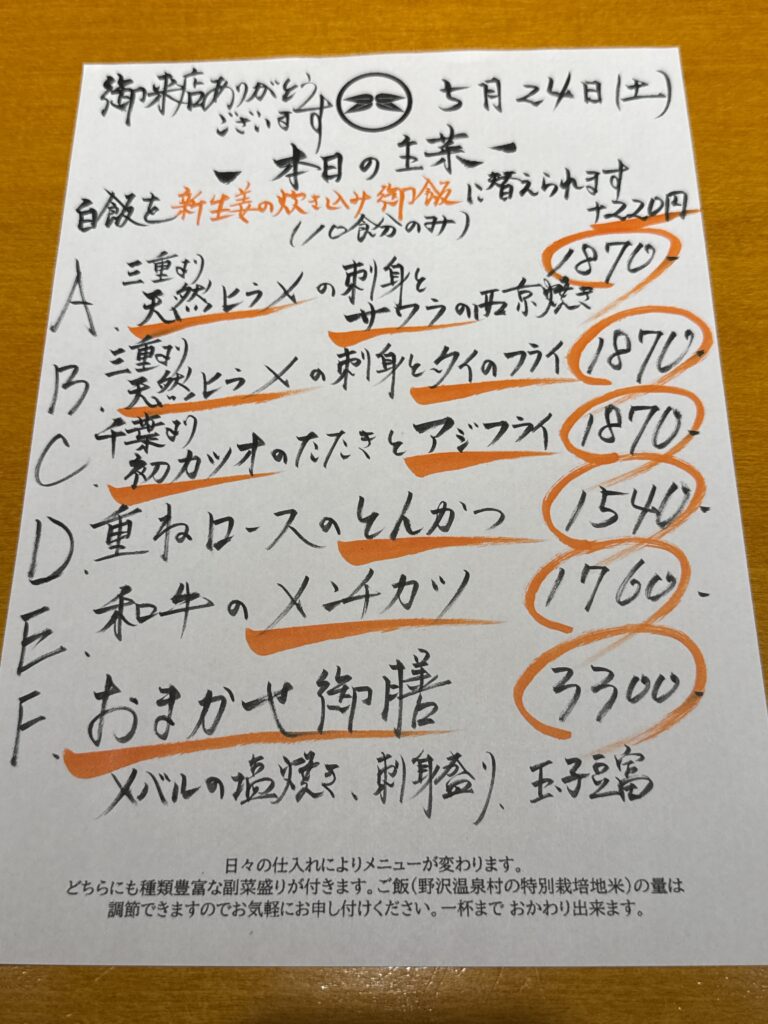 御来店ありがとう
ございます
5月24日(土)
ー 本日の主菜 ー
白飯を新生姜の炊き込み御飯に替えられます
(10食分のみ)
+220円
A. 三重より
天然ヒラメの刺身と
サワラの西京焼き
1870-
B. 三重より
天然ヒラメの刺身とタイのフライ 1870-
C. 千葉より
初カツオのたたきとアジフライ 1870-
D. 重ねロースのとんかつ 1540-
E. 和牛のメンチカツ 1760-
F. おまかせ御膳 3300-
メバルの塩焼き、刺身盛り、玉子豆富
日々の仕入れによりメニューが変わります。
どちらにも種類豊富な副菜盛りが付きます。ご飯(野沢温泉村の特別栽培地米)の量は
調節できますのでお気軽にお申し付けください。一杯まで おかわり出来ます。